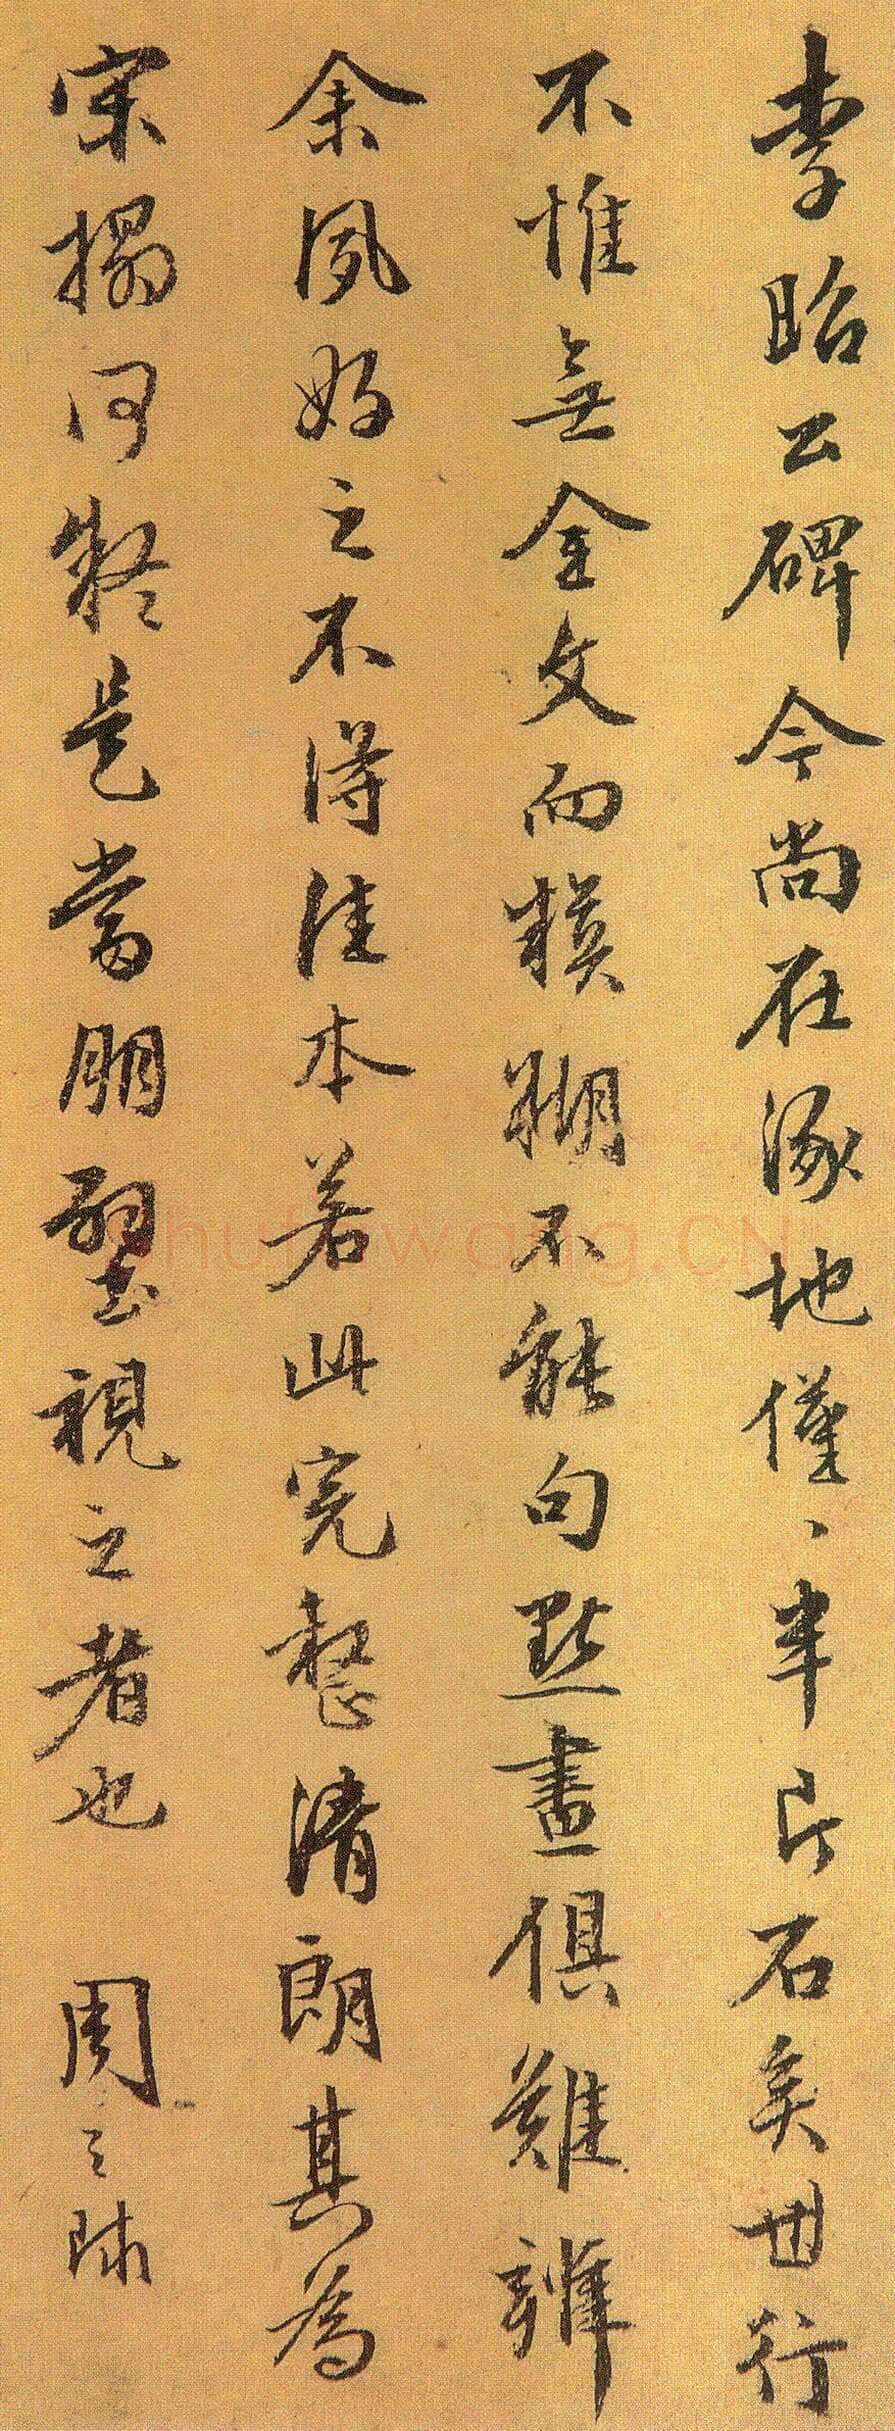 李昭公碑今尚在涿地僅、半片石矣世行
不惟無全文而糢糊不能句點畫俱難辨
余夙好之不得佳本若此完整清朗其為
宋搨何疑是當朋璧視之者也 周天球
shufawang.CN